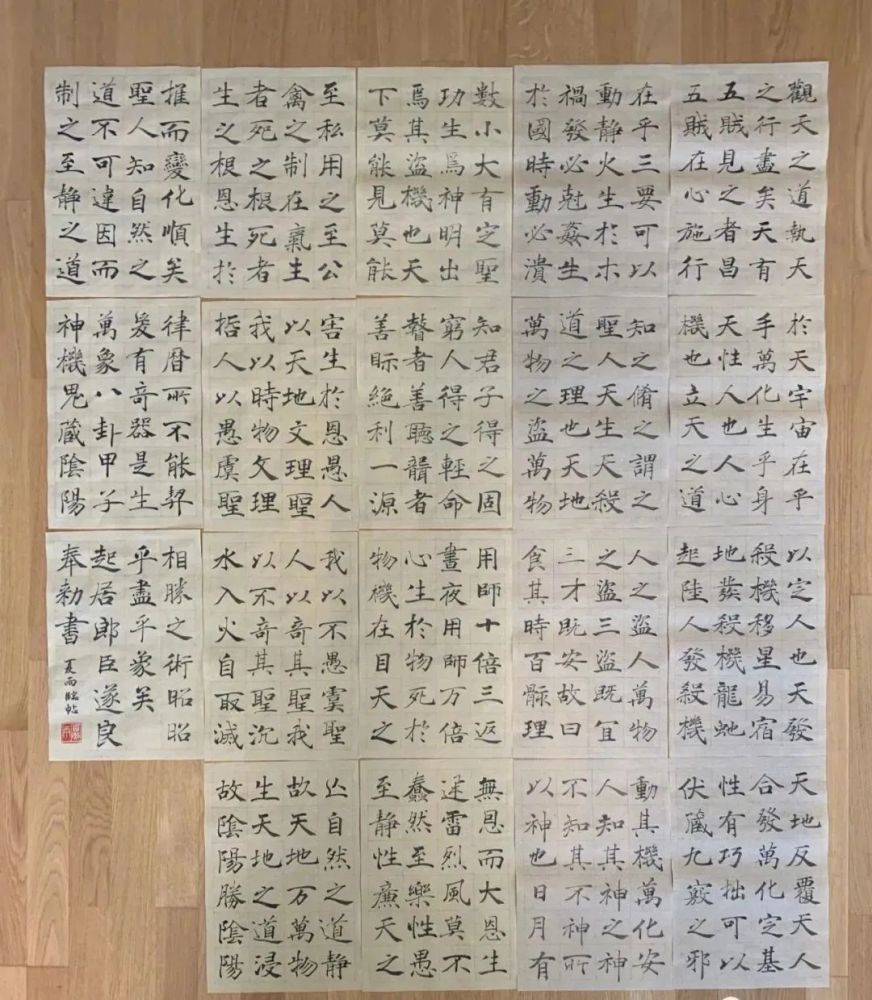 觀天之道執天
之行盡矣天有
五賊見之者昌
五賊在心施行
於天宇宙在乎
手萬化生乎身
天性人也人心
機也立天之道
以定人也天發
殺機移星易宿
地發殺機龍虵
起陸人發殺機
天地反覆天人
合發萬化定基
性有巧拙可以
伏藏九竅之邪
在乎三要可以
動靜火生於木
禍發必尅姦生
於國時動必潰
知之脩之謂之
聖人天生天殺
道之理也天地
萬物之盜萬物
人之盜人萬物
之盜三盜既宜
三才既安故曰
食其時百骸理
動其機萬化安
人知其神之神
不知其不神所
以神也日月有
數小大有定聖
功生焉神明出
焉其盜機也天
下莫能見莫能
知君子得之固
窮人得之輕命
瞽者善聽聾者
善眎絕利一源
用師十倍三返
晝夜用師万倍
心生於物死於
物機在目天之
無恩而大恩生
迅雷烈風莫不
蠢然至樂性愚
至靜性廉天之
至私用之至公
禽之制在氣生
者死之根死者
生之根恩生於
害生於恩愚人
以天地文理聖
我以時物文理
哲人以愚虞聖
我以不愚虞聖
人以奇其聖我
以不奇其聖沉
水入火自取滅
亡自然之道靜
故天地万萬物
生天地之道浸
故陰陽勝陰陽
推而變化順矣
聖人知自然之
道不可違因而
制之至靜之道
律曆所不能契
爰有奇器是生
萬象八卦甲子
神機鬼藏陰陽
相勝之術昭昭
乎盡乎象矣
起居郎臣遂良
奉勅書
夏雨臨帖